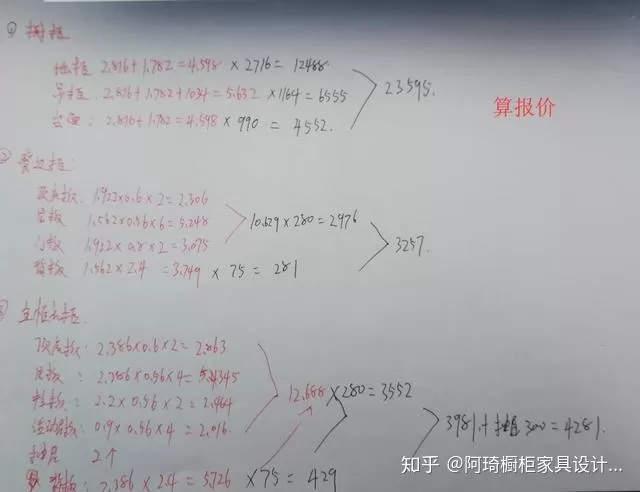 ① 橱柜
地柜 2.816+1.782=4.598 × 2716= 12488
吊柜. 2.816+1.782+1034=5.632 ×1164=6555
23595.
台面: 2.816+1.782=4.598 × 990 = 4552.
算报价
② 餐边柜:
顶底板. 1.922×0.6×2=2.306
层板 1.562×0.56×6=5.248
10.629×280=2976
门板 1.922×0.8×2=3.075
3257.
背板 1.562×2.4 =3.749 × 75 = 281
顶底板: 2.386×0.6×2=2.863
层板: 2.386×0.56×4=5.4345
12.688×280=3552
2.2×0.56×2=2.464
活动层板: 0.9×0.56×4=2.016.
3981.+抽屉300=4281.
抽屉 2个
背板: 2.386×2.4=5.726 ×75= 429
知乎 @阿琦橱柜家具设计...